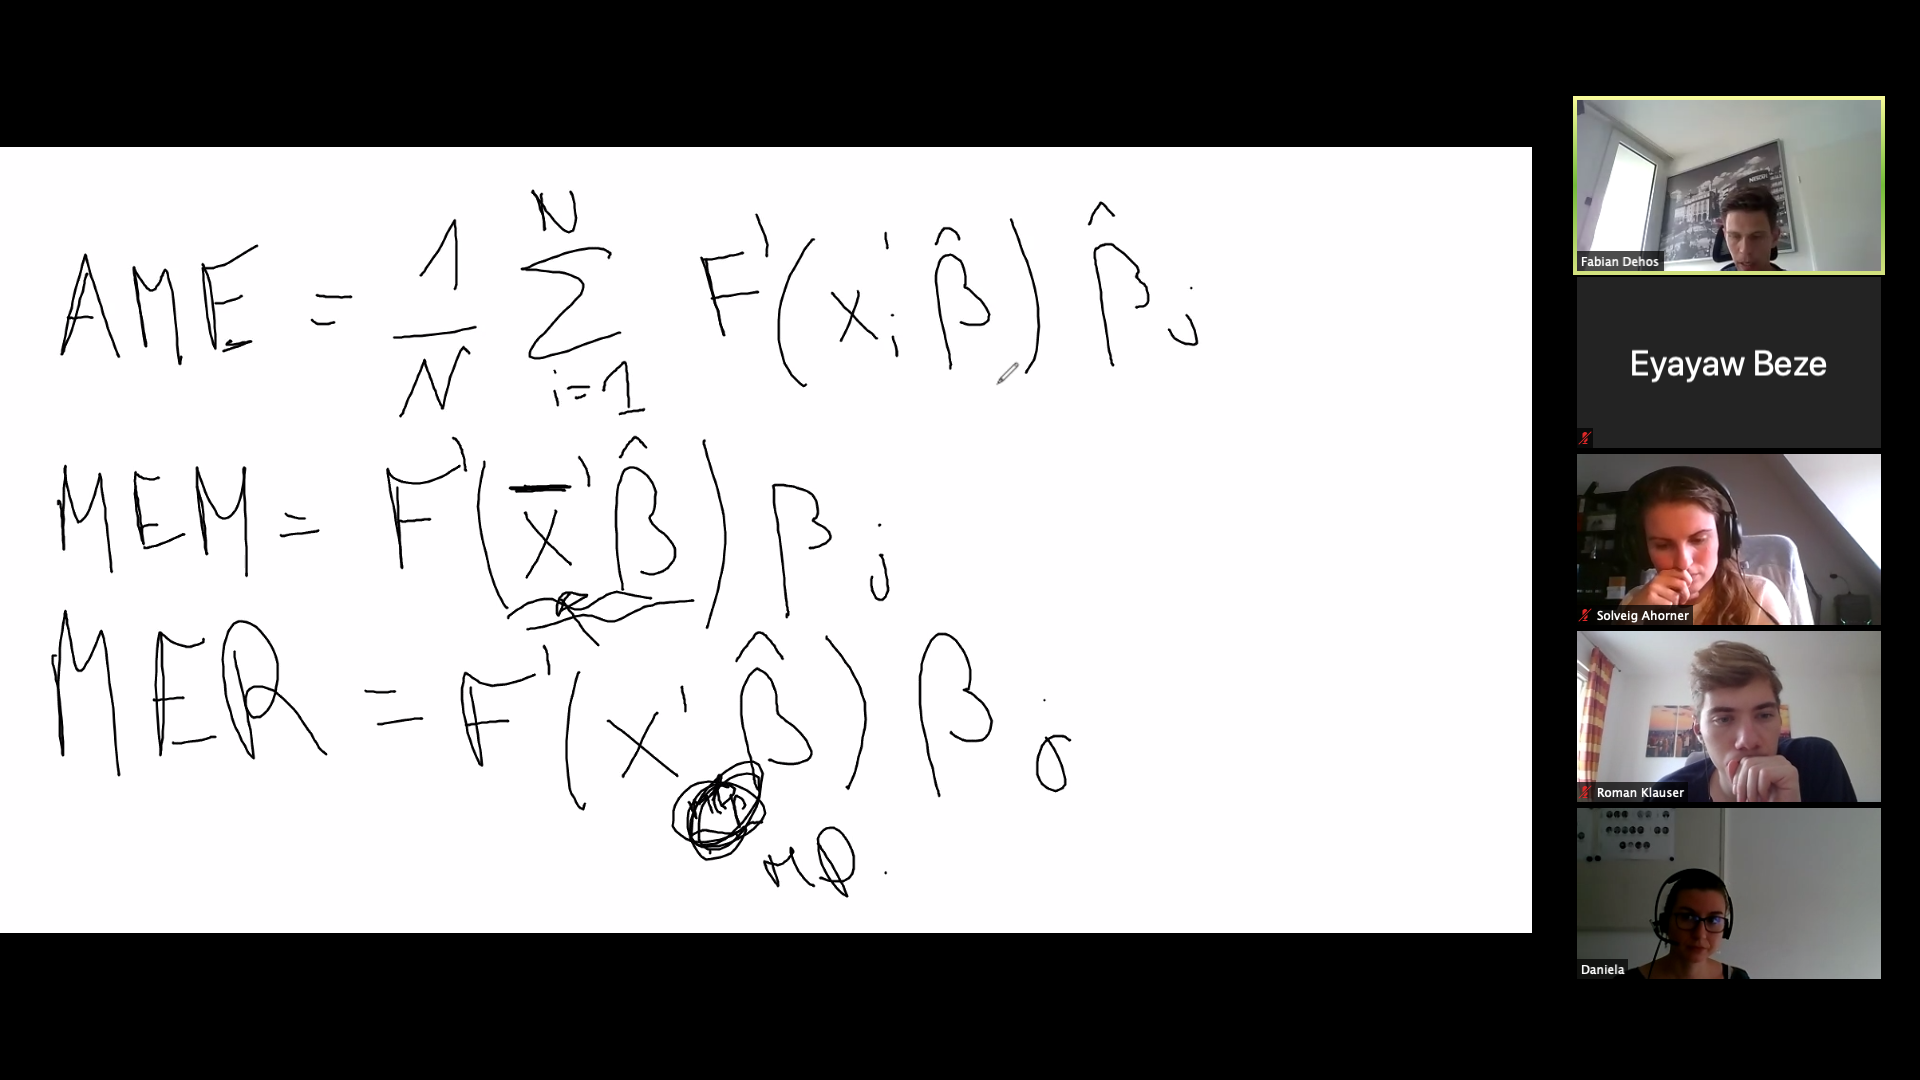 AME = 1/N ∑_{i=1}^{N} F'(x_i' β̂) β̂_j
MEM = F'(x̄' β̂) β_j
MER = F'(x' β̂) β_j
Fabian Dehos
Eyayaw Beze
Solveig Ahorner
Roman Klauser
Daniela